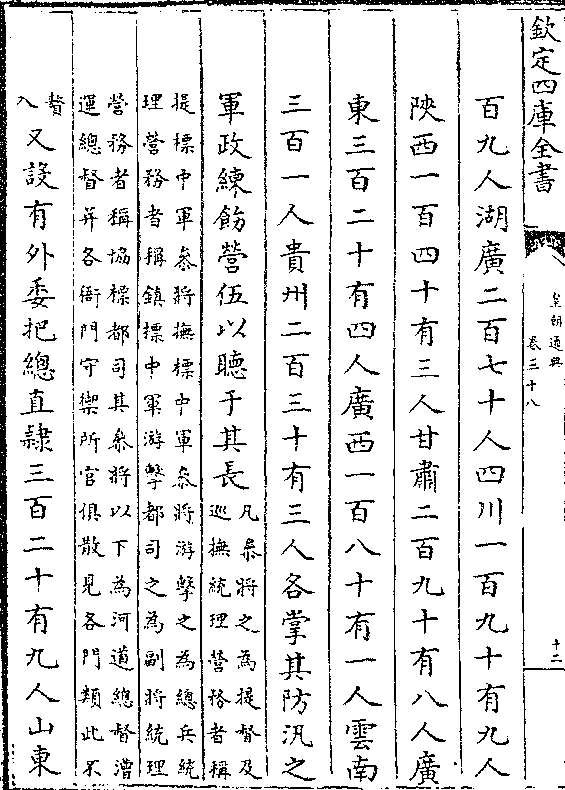 欽定四庫全書
皇朝通典
卷三十八
十二
百九人湖廣二百七十人四川一百九十有九人
陜西一百四十有三人甘肅二百九十有八人廣
東三百二十有四人廣西一百八十有一人雲南
三百一人貴州二百三十有三人各掌其防汛之
軍政練飭營伍以聽于其長凡叅將之為提督及
巡撫統理營務者稱
提標中軍叅將撫標中軍叅將游擊之為總兵統
理營務者稱鎮標中軍游擊都司之為副將統理
營務者稱協標都司其叅將以下為河道總督漕
運總督并各衙門守禦所官俱散見各門類此不
贅入又設有外委把總直隸三百二十有九人山東